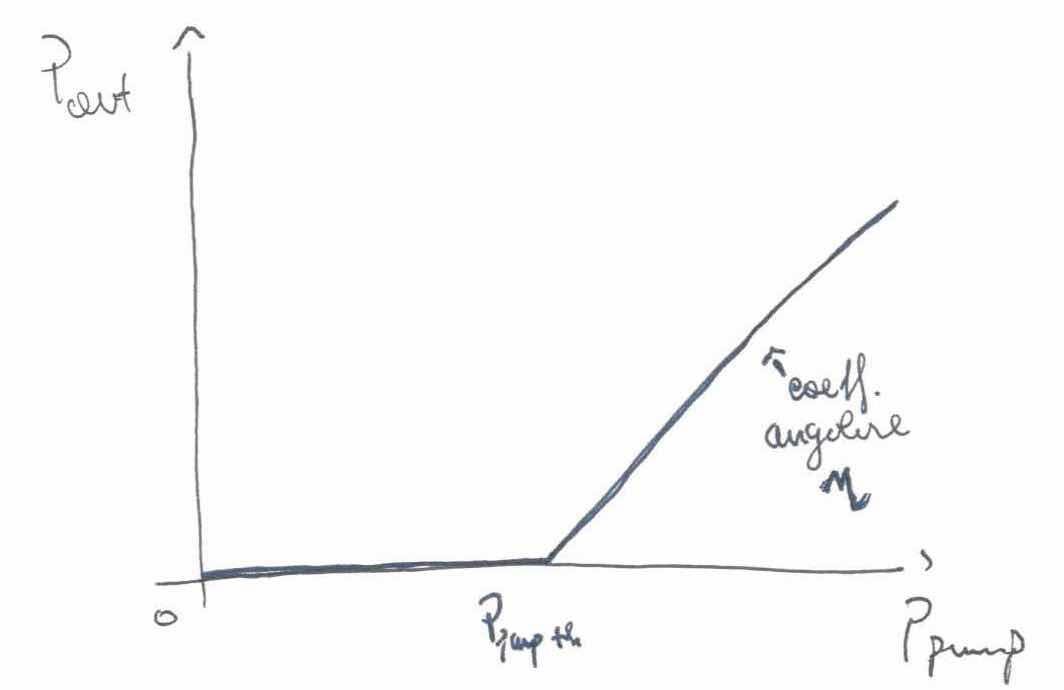 Pout
coeff.
angolare
η
0
Ppump th
Ppump